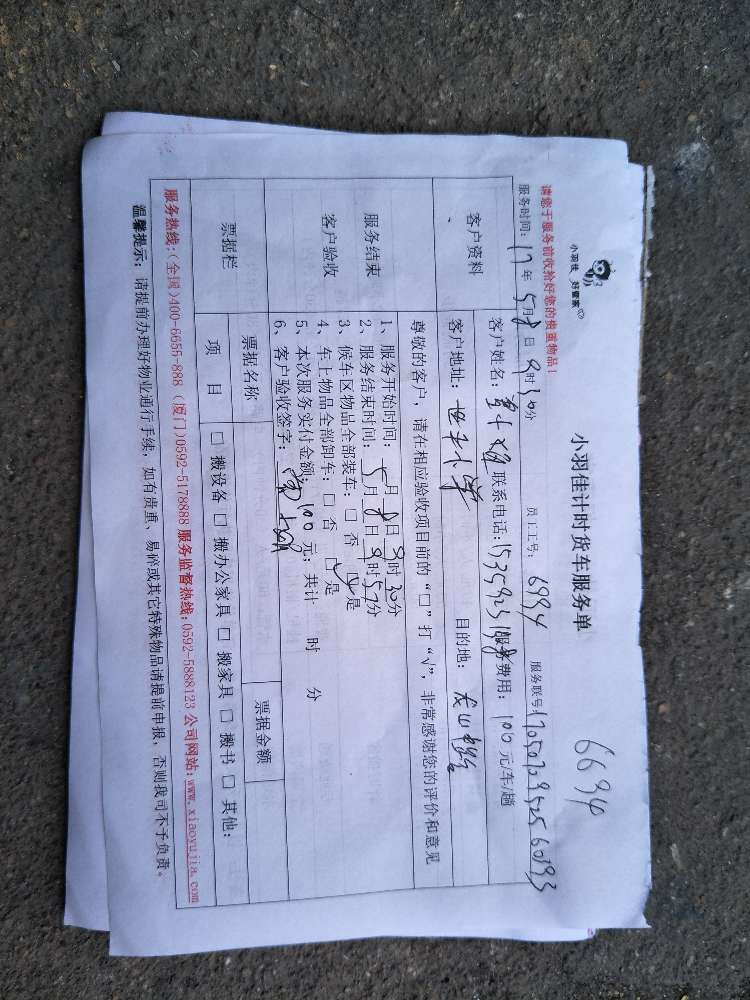 小羽佳 好管家
小羽佳计时货车服务单
6694
请您于服务前收拾好您的贵重物品！
服务时间：17年5月8日9时30分 员工工号：6994 服务联号：
客户资料
客户姓名： 联系电话： 服务费用：100元/车/趟
客户地址： 目的地：
服务结束
客户验收
尊敬的客户，请在相应验收项目前的“□”打“√”，非常感谢您的评价和意见
1、服务开始时间：5月8日9时30分
2、服务结束时间：5月8日9时57分
3、候车区物品全部装车：□否 ☑是
4、车上物品全部卸车：□否 ☑是
5、本次服务实付金额：100元；共计 时 分
6、客户验收签字：
票据栏
票据名称 票据金额
项目 □搬设备 □搬办公家具 □搬家具 □搬书 □其他：
服务热线：（全国）400-6655-888（厦门）0592-5178888 服务监督热线：0592-5888123 公司网站：www.xiaoyujia.com
温馨提示：请提前办理好物业通行手续，如有贵重、易碎或其它特殊物品请提前申报，否则我司不予负责。